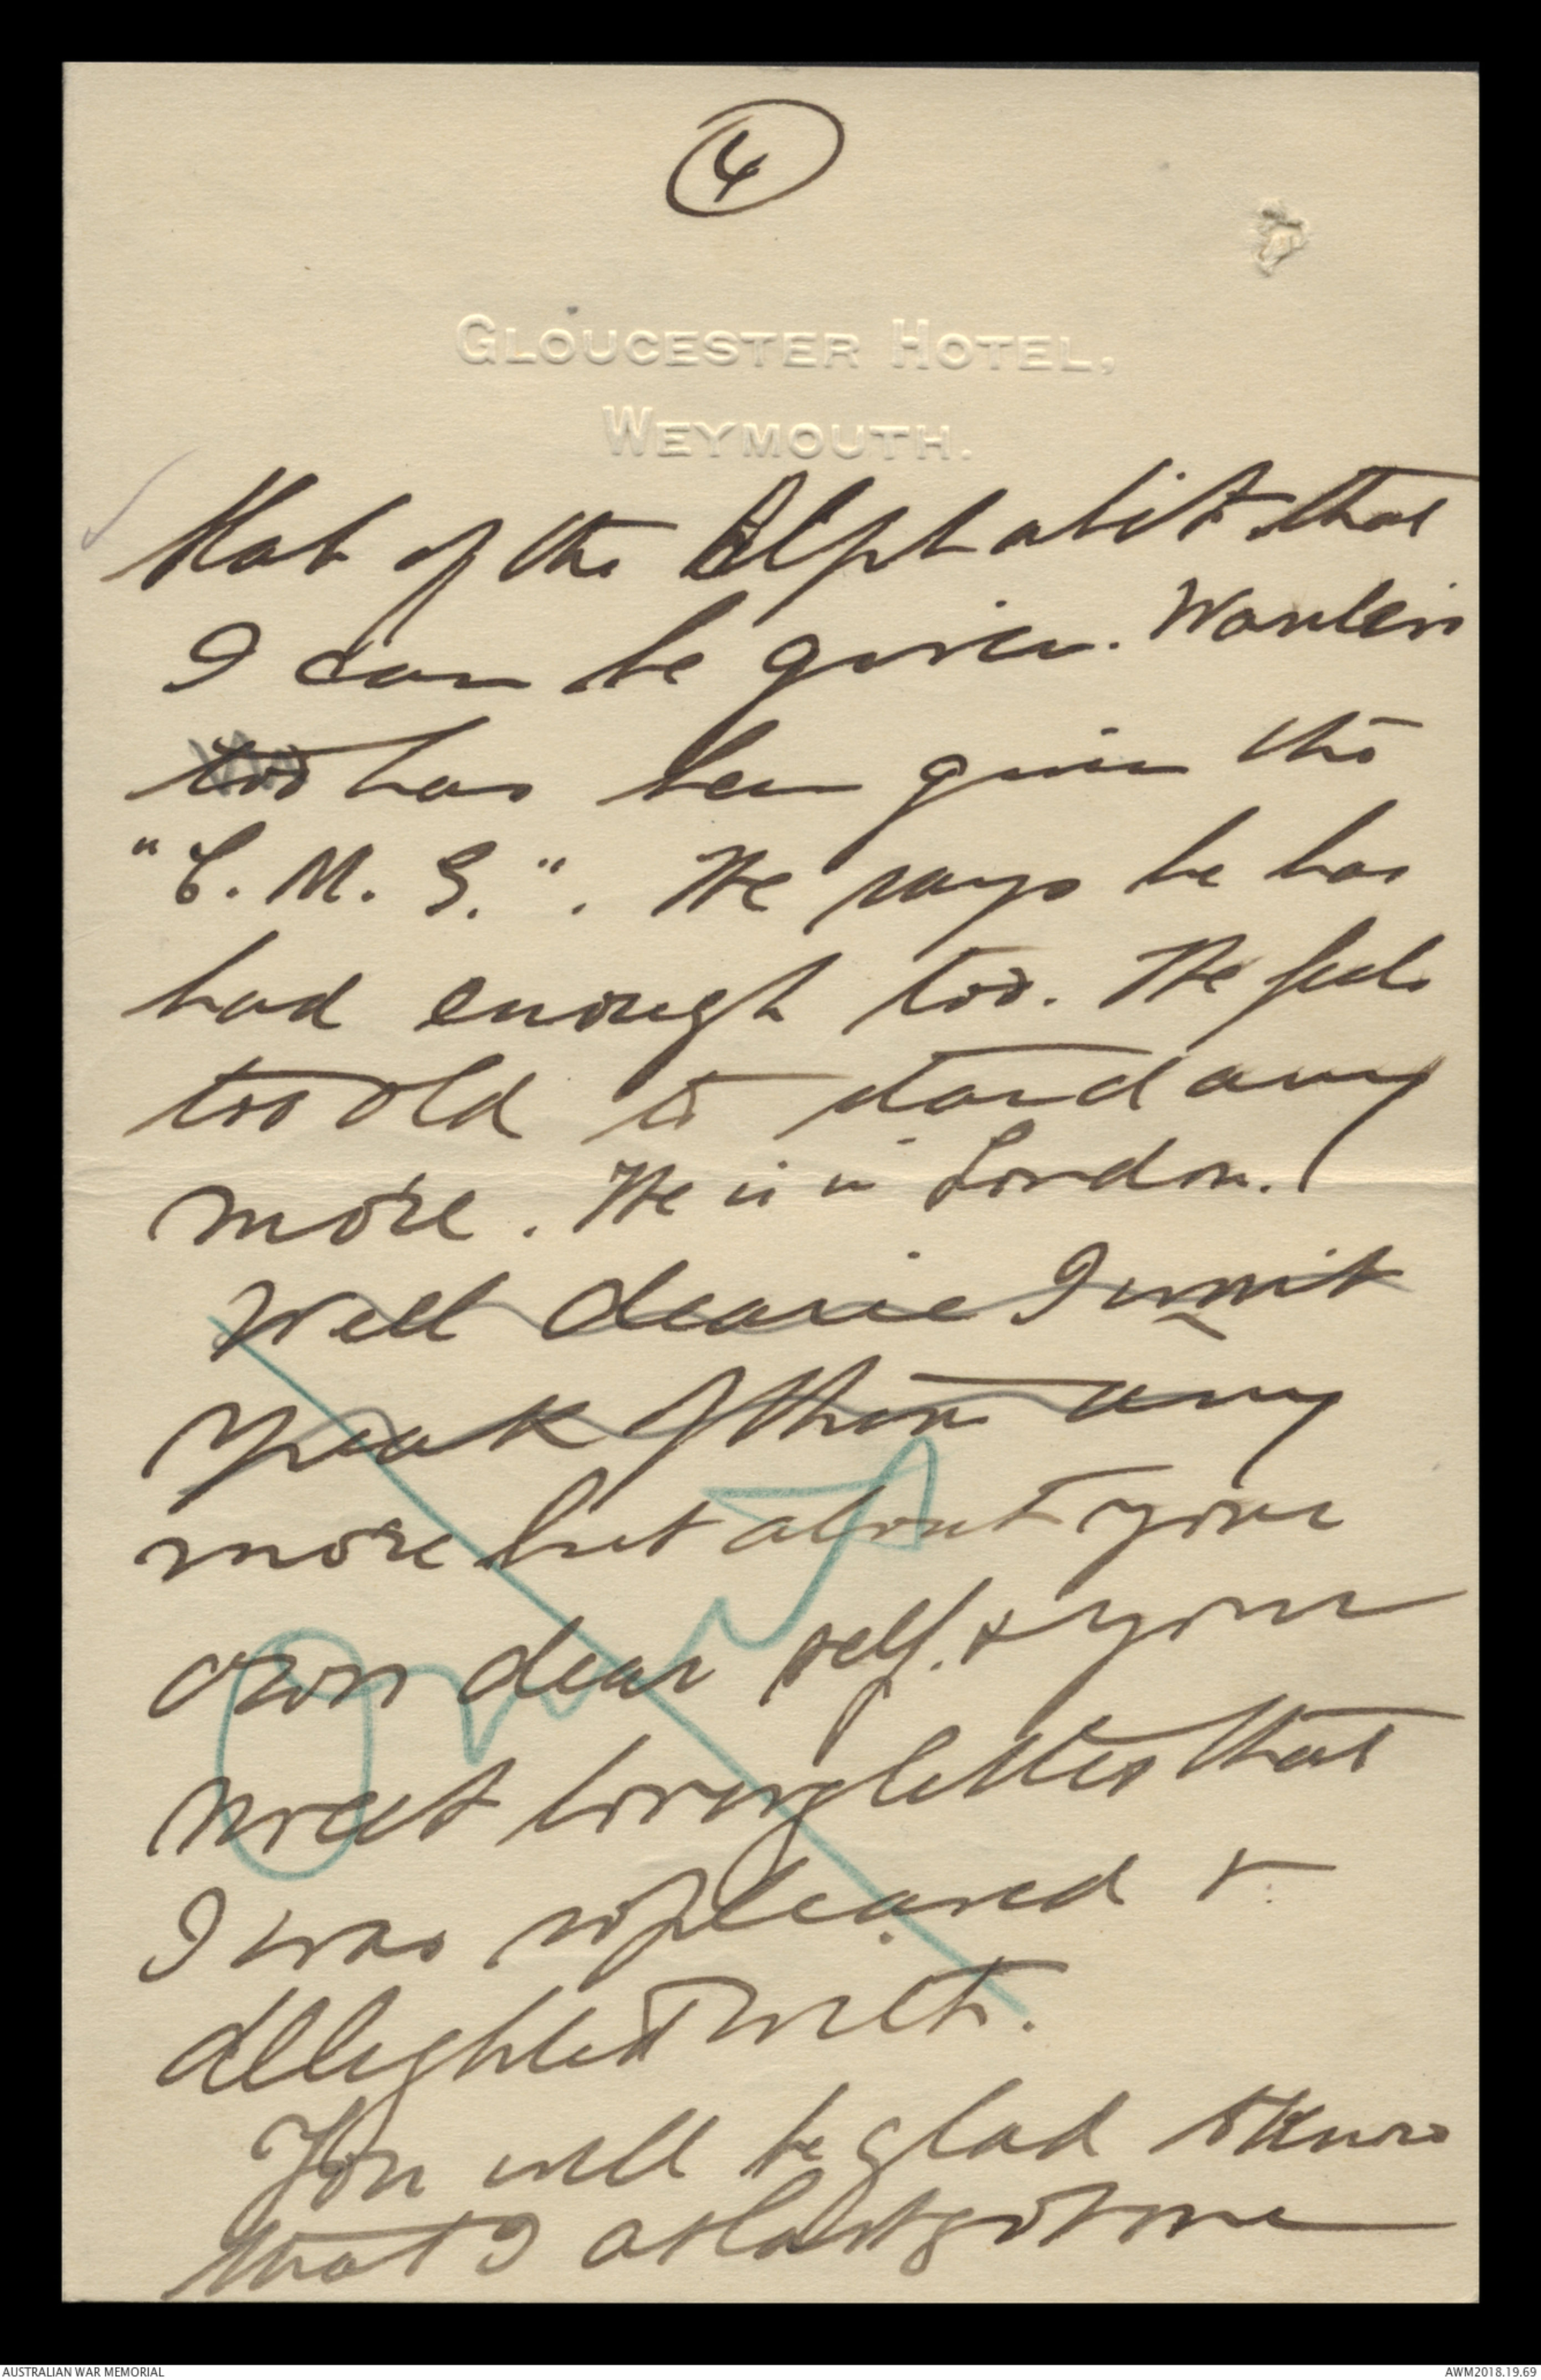 4
GLOUCESTER HOTEL,
WEYMOUTH.
that of the Alphabet that
I can be given.
too has been given the
"C. M. G.". He says he has
had enough too. He feels
too old to stand any
more. He is in London.
Well dearie I wont
speak of them any
more but about your
own dear self. & your
sweet loving letters that
I was so pleased &
delighted with.
You will be glad to know
that I at last got one
AUSTRALIAN WAR MEMORIAL
AWM2018.19.69